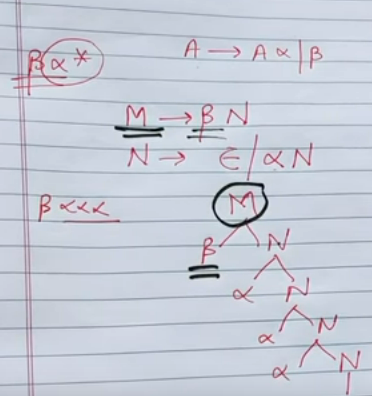 A → A α | β
β α *
M → β N
N → ∈ / α N
β α α α
M
β N
α N
α N
α N